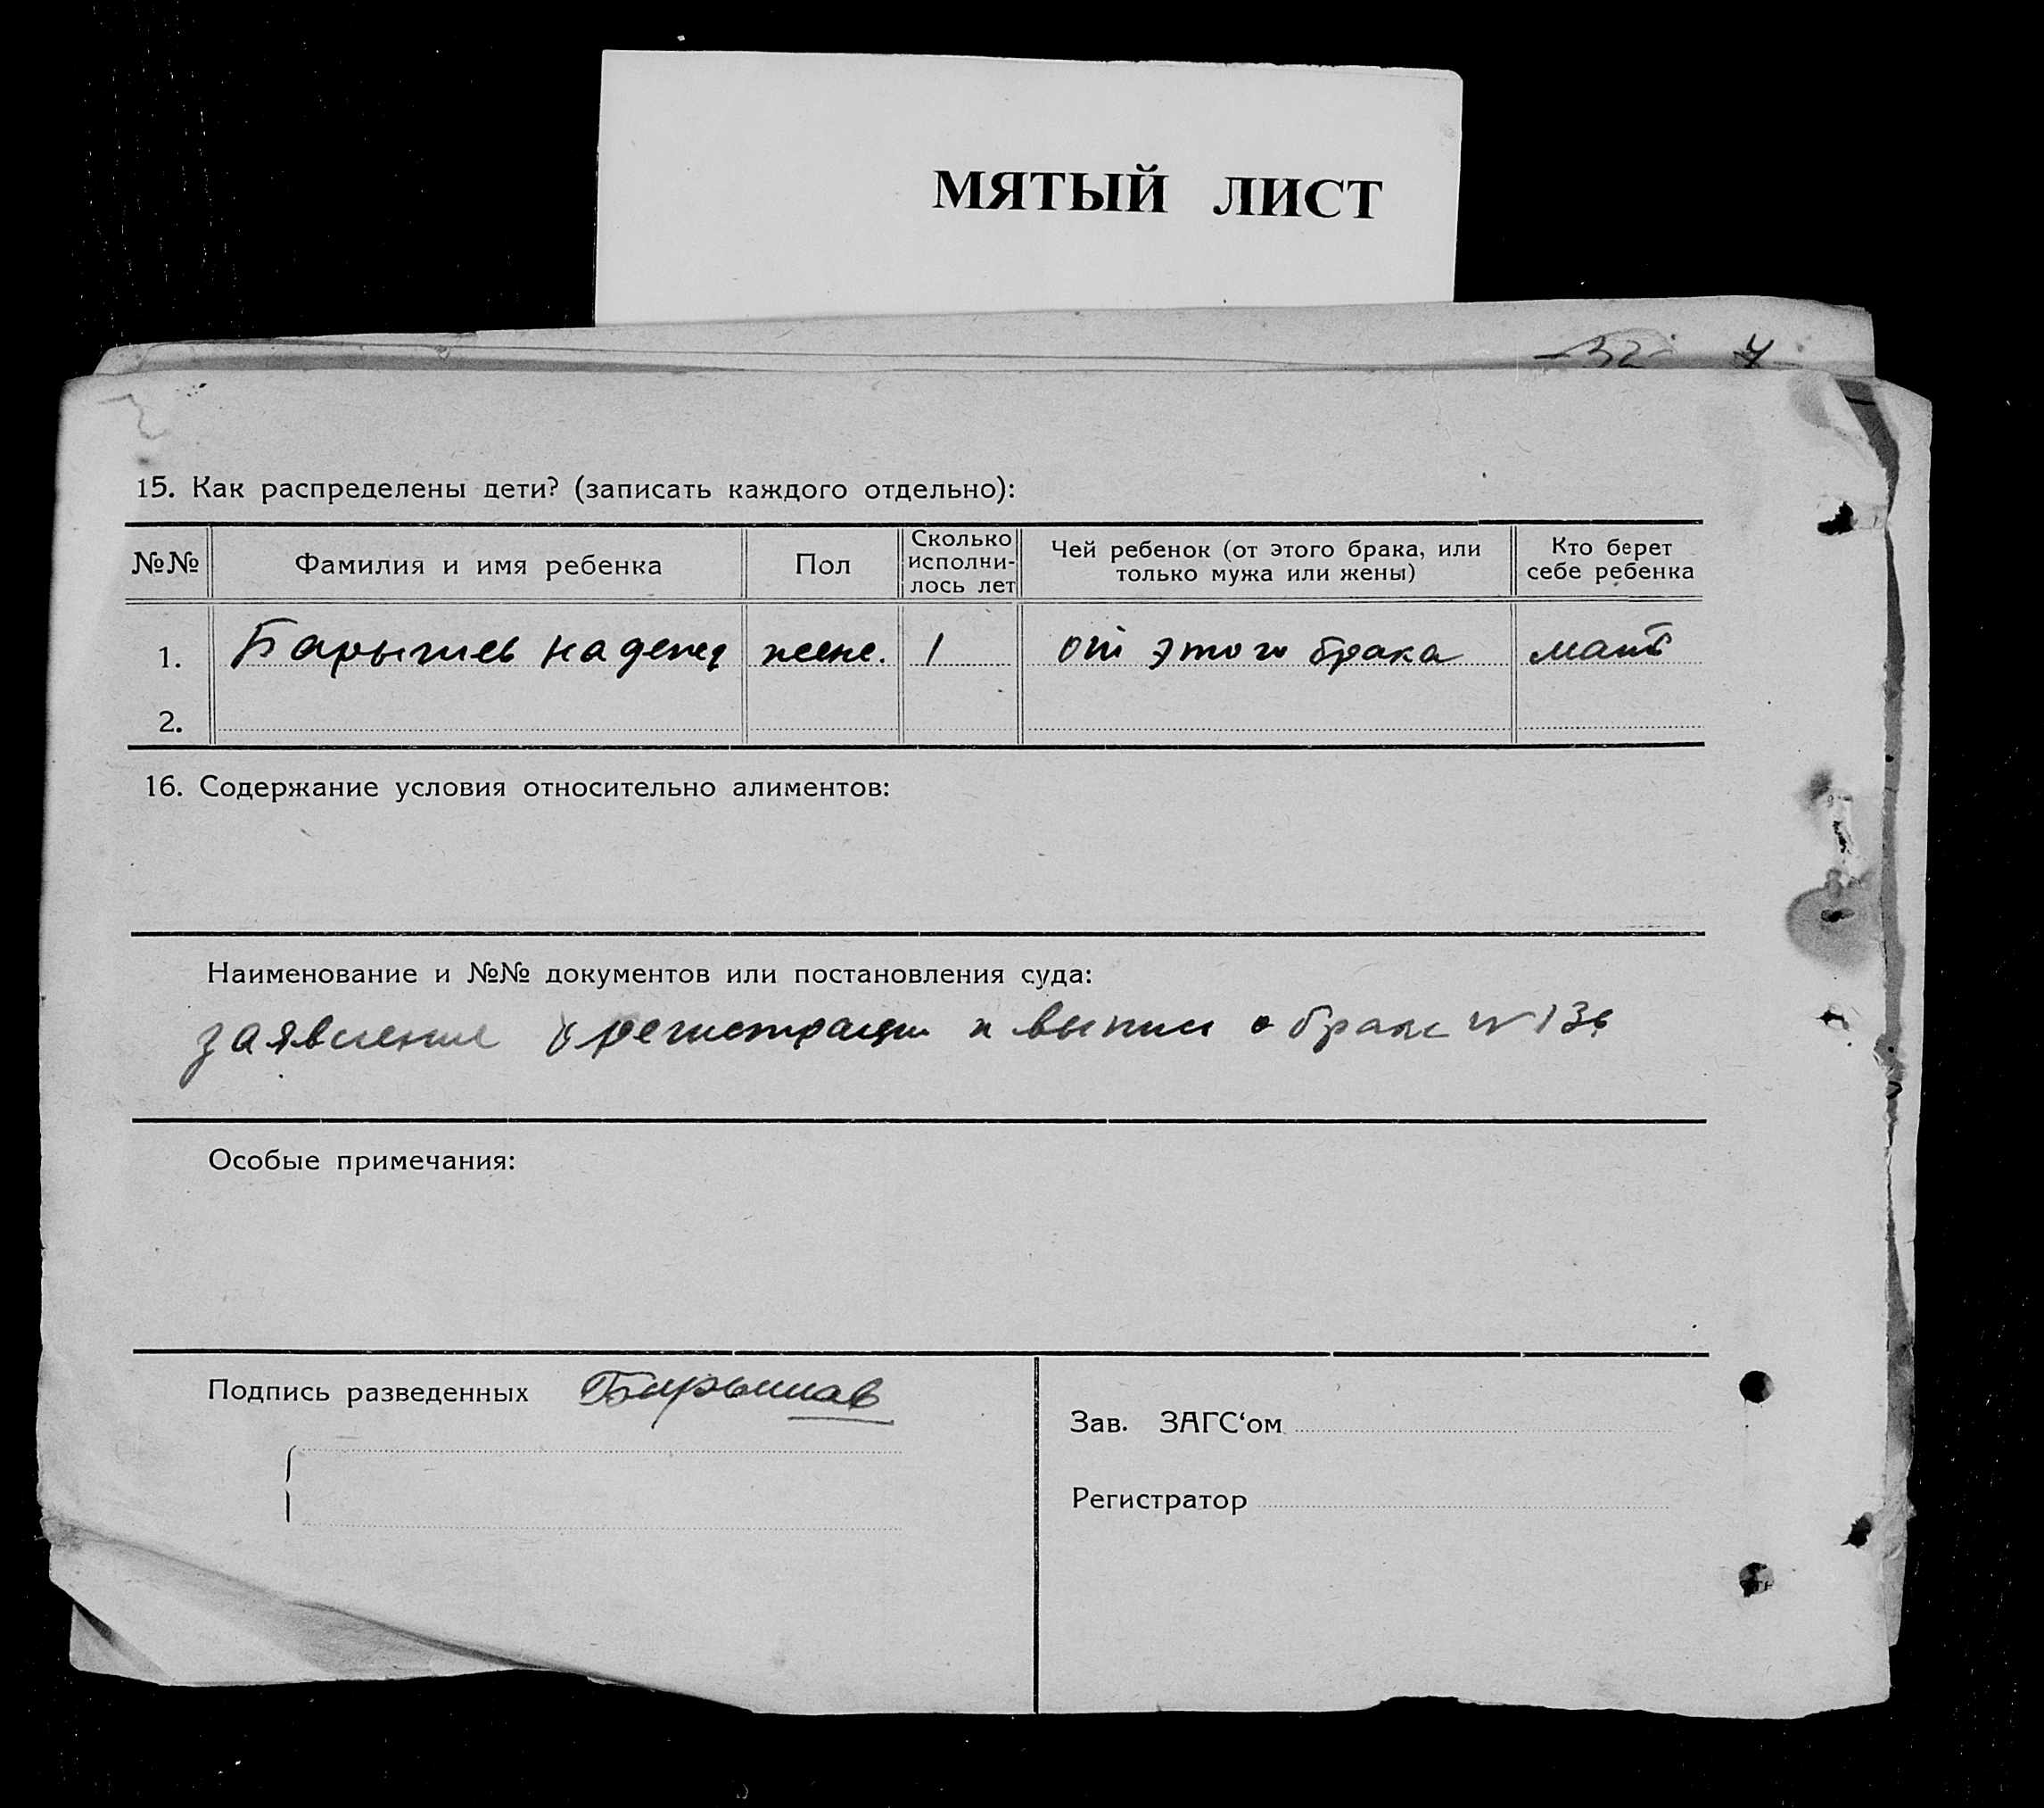 МЯТЫЙ ЛИСТ
32 7
15. Как распределены дети? (записать каждого отдельно):
№№ Фамилия и имя ребенка Пол Сколько исполни-лось лет Чей ребенок (от этого брака, или только мужа или жены) Кто берет себе ребенка
1. Барышев жен. 1 от этого брака мать
2.
16. Содержание условия относительно алиментов:
Наименование и №№ документов или постановления суда:
заявление о регистрации и выпис о браке №
Особые примечания:
Подпись разведенных
Зав. ЗАГС‘ом
Регистратор